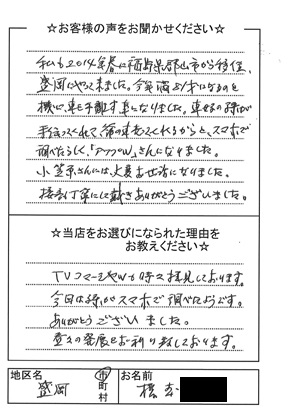 ☆お客様の声をお聞かせください☆
私も2014年春に福島県郡山市から移住、
盛岡にやって来ました。今年満 才になるのを
機に、車を手離す事になりました。車 の 
手伝ってくれて 来てくれるからと、スマホで
調べたらしく、「アップル」さんになりました。
小笠原さんには、大変お世話になりました。
接客丁寧にして戴きありがとうございました。
☆当店をお選びになられた理由を
お教えください☆
TVコマーシャルも時々拝見しております。
今回は がスマホで調べたようです。
ありがとうございました。
益々の発展をお祈り致しております。
地区名
盛岡
市
町
村
お名前
橋本